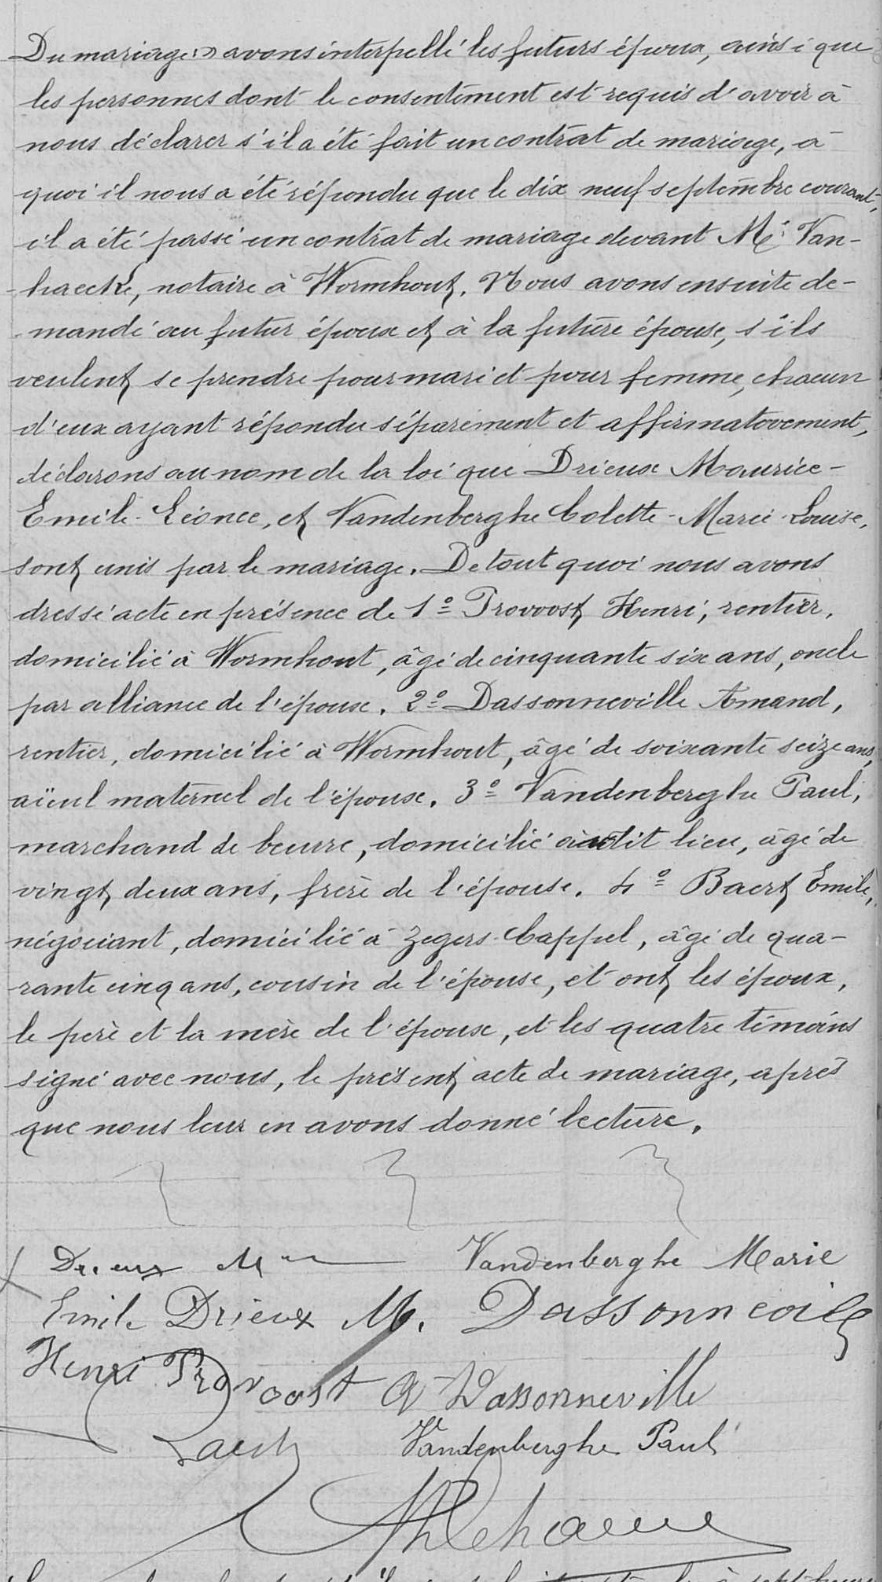 Du mariage :) avons interpellé les futurs époux, ainsi que
les personnes dont le consentement est requis d'avoir à
nous déclarer s'il a été fait un contrat de mariage, à
quoi il nous a été répondu que le dix neuf septembre courant,
il a été passé un contrat de mariage devant Me Van-
haecke, notaire à Wormhout. Nous avons ensuite de-
mandé au futur époux et à la future épouse, s'ils
veulent se prendre pour mari et pour femme, chacun
d'eux ayant répondu séparément et affirmativement,
déclarons au nom de la loi que Drieux Maurice-
Emile-Léonce, et Vandenberghe Colette-Marie-Louise,
sont unis par le mariage. De tout quoi nous avons
dressé acte en présence de 1º Provoost Henri, rentier,
domicilié à Wormhout, âgé de cinquante six ans, oncle
par alliance de l'épouse. 2º Dassonneville Amand,
rentier, domicilié à Wormhout, âgé de soixante seize ans,
aïeul maternel de l'épouse. 3º Vandenberghe Paul,
marchand de beurre, domicilié audit lieu, âgé de
vingt deux ans, frère de l'épouse. 4º Baert Emile,
négociant, domicilié à Zegers-Cappel, âgé de qua-
rante cinq ans, cousin de l'épouse, et ont les époux,
le père et la mère de l'épouse, et les quatre témoins
signé avec nous, le présent acte de mariage, après
que nous leur en avons donné lecture.
Drieux M Vandenberghe Marie
Emile Drieux M. Dassonneville
Henri Provoost A Dassonneville
Baert Vandenberghe Paul